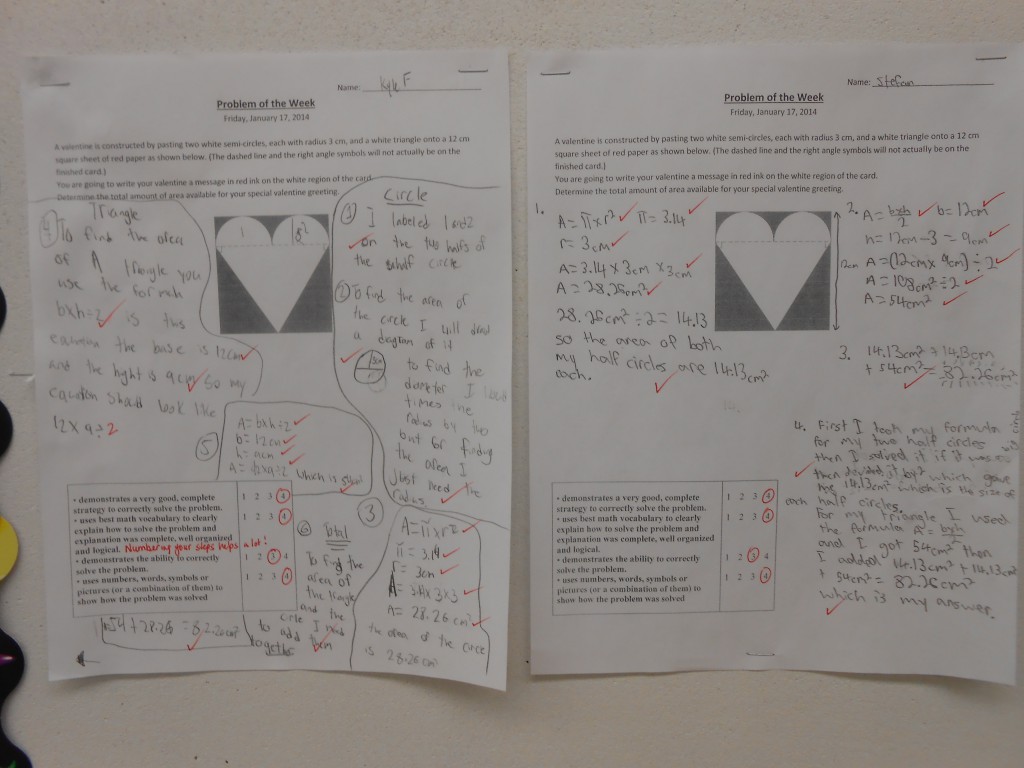 Name: Kyle F
Problem of the Week
Friday, January 17, 2014
A valentine is constructed by pasting two white semi-circles, each with radius 3 cm, and a white triangle onto a 12 cm
square sheet of red paper as shown below. (The dashed line and the right angle symbols will not actually be on the
finished card.)
You are going to write your valentine a message in red ink on the white region of the card.
Determine the total amount of area available for your special valentine greeting.
Triangle
④ To find the area
of A triangle you
use the formula
bxh÷2 is this
equation the base is 12cm
and the hight is 9cm so my
equation should look like
12 x 9 ÷ 2
1
2
Circle
① I labeled 1 and 2
on the two halfs of
the circle
② To find the area of
the circle I will
a diagram of it
to find the
times the
radius by two
but for finding
the area I
just need the
radius
③
A=πxr²
π = 3.14
r = 3cm
A = 3.14x3x3
A = 28.26 cm²
the area of the circle
is 28.26 cm²
⑤
A = bxh÷2
b = 12cm
h = 9cm
A = 12x9÷2 which is 54cm²
• demonstrates a very good, complete
strategy to correctly solve the problem.
1 2 3 4
• uses best math vocabulary to clearly
explain how to solve the problem and
explanation was complete, well organized
and logical. Numbering your steps helps a lot!
1 2 3 4
• demonstrates the ability to correctly
solve the problem.
1 2 3 4
• uses numbers, words, symbols or
pictures (or a combination of them) to
show how the problem was solved
1 2 3 4
⑥ total
To find the
area of
the triangle
and the
circle I need
to add them
together
54+28.26 = 82.26cm²
Name: Stefan
Problem of the Week
Friday, January 17, 2014
A valentine is constructed by pasting two white semi-circles, each with radius 3 cm, and a white triangle onto a 12 cm
square sheet of red paper as shown below. (The dashed line and the right angle symbols will not actually be on the
finished card.)
You are going to write your valentine a message in red ink on the white region of the card.
Determine the total amount of area available for your special valentine greeting.
1.
A=πxr² π=3.14
r=3cm
A=3.14 x 3cm x 3cm
A=28.26cm²
28.26cm²÷2=14.13
so the area of both
my half circles are 14.13cm²
each.
12cm
2. A=bxh/2 b=12cm
h=12cm-3=9cm
A=(12cm x 9cm)÷2
A=108cm²÷2
A=54cm²
3. 14.13cm²+14.13cm
+54cm²=82.26cm²
4. First I took my formula
for my two half circles
then I solved it if it was
then divided it by 2 which gave
me 14.13cm² which is the size of
each half circles.
For my triangle I used
the formula A=bxh/2
and I got 54cm² then
I added 14.13cm²+14.13cm²
+54cm²=82.26cm²
which is my answer.
• demonstrates a very good, complete
strategy to correctly solve the problem.
1 2 3 4
• uses best math vocabulary to clearly
explain how to solve the problem and
explanation was complete, well organized
and logical.
1 2 3 4
• demonstrates the ability to correctly
solve the problem.
1 2 3 4
• uses numbers, words, symbols or
pictures (or a combination of them) to
show how the problem was solved
1 2 3 4